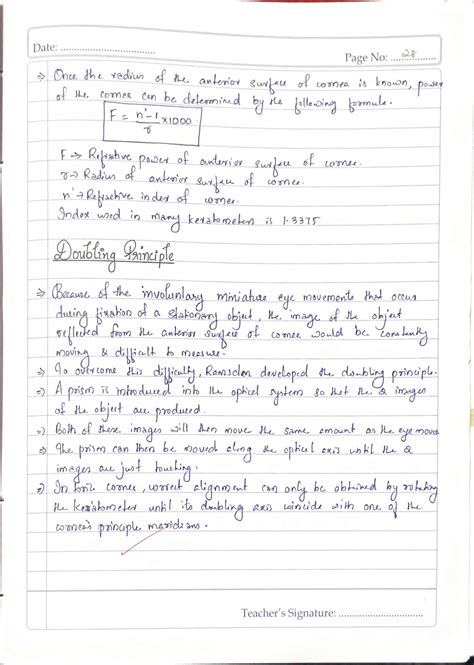 Date: ................................
Page No: ...28...........
⇒ Once the radius of the anterior surface of cornea is known, power
of the cornea can be determined by the following formula.
F = n'-1/r ×1000
F → Refrative power of anterior surface of cornea.
r → Radius of anterior surface of cornea.
n' → Refractive index of cornea.
Index used in many keratometers is 1.3375
Doubling Principle
⇒ Because of the involuntary miniature eye movements that occur
during fixation of a stationary object, the image of the object
reflected from the anterior surface of cornea would be constantly
moving & difficult to measure.
⇒ To overcome this difficulty, Ramsden developed the doubling principle.
⇒ A prism is introduced into the optical system so that the 2 images
of the object are produced.
⇒ Both of these images will then move the same amount as the eye moves
⇒ The prism can then be moved along the optical axis until the 2
images are just touching.
⇒ In toric cornea, correct alignment can only be obtained by rotating
the keratometer until its doubling axis coincide with one of the
cornea's principle meridians.
Teacher's Signature: ............................